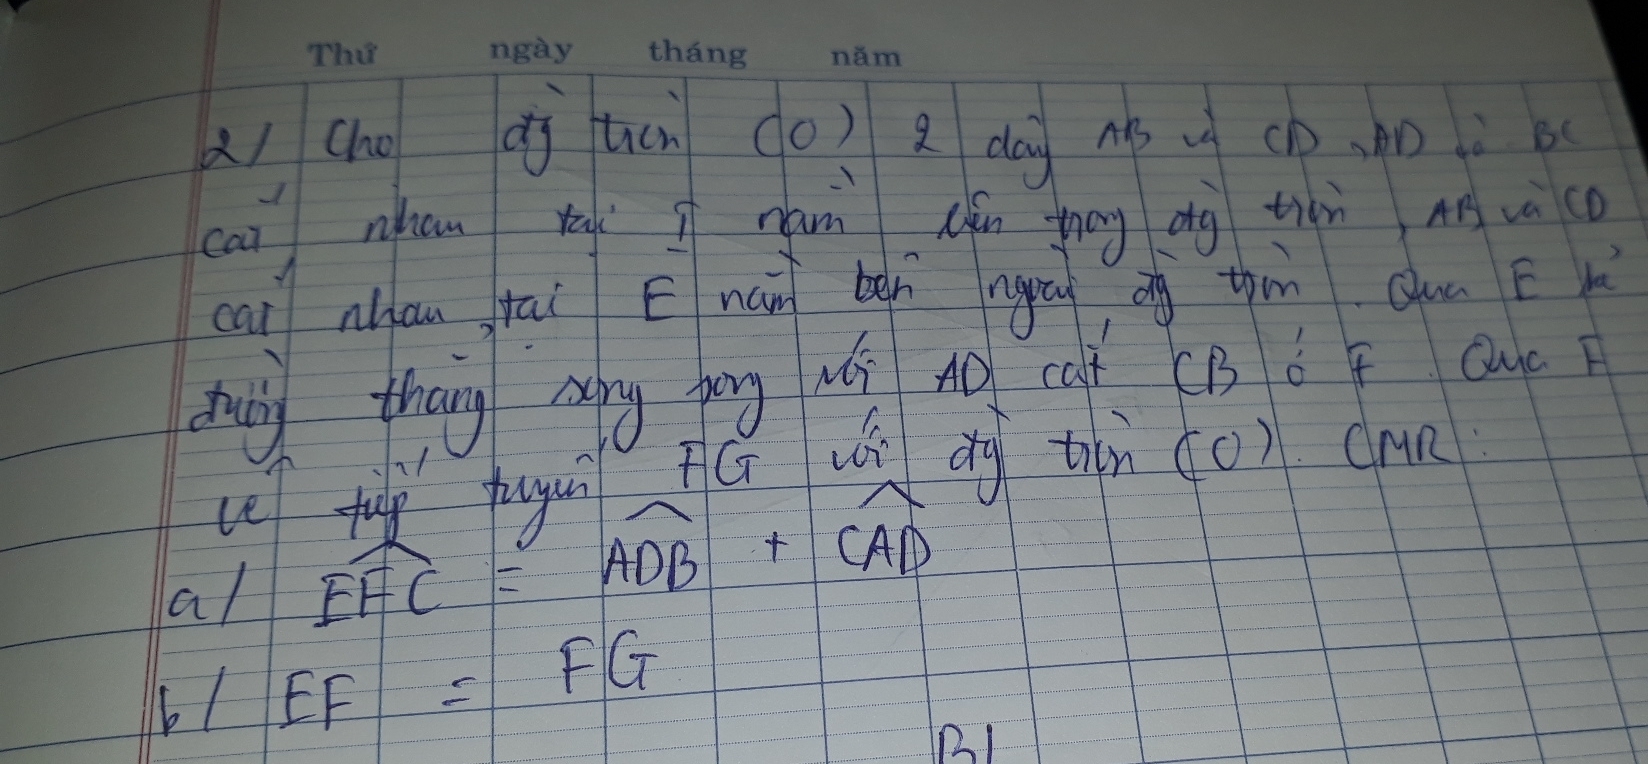 Thứ ngày tháng năm
2/ Cho đg tròn (O) 2 dây AB và CD, AD và BC
cắt nhau tại I nằm bên trong đg tròn, AB và CD
cắt nhau tại E nằm bên ngoài đg tròn. Qua E kẻ
đường thẳng song song với AD cắt CB ở F. Qua F
vẽ tiếp tuyến FG với đg tròn (O). CMR:
a/ EFC = ADB + CAD
b/ EF = FG